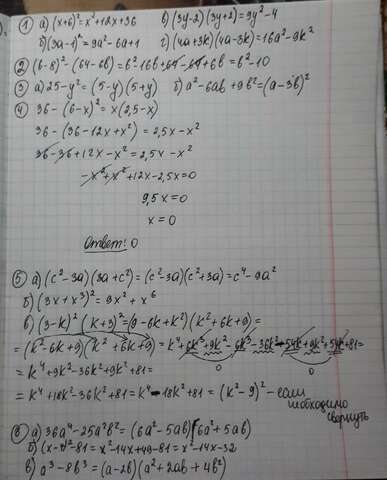 ① а) (x+6)²=x²+12x+36 в) (3y-2)(3y+2)=9y²-4
б) (3a-1)²=9a²-6a+1 г) (4a+3k)(4a-3k)=16a²-9k²
② (b-8)²-(64-6b)=b²-16b+64-64+6b=b²-10
③ а) 25-y²=(5-y)(5+y) б) a²-6ab+9b²=(a-3b)²
④ 36-(6-x)²=x(2,5-x)
36-(36-12x+x²)=2,5x-x²
36-36+12x-x²=2,5x-x²
-x²+x²+12x-2,5x=0
9,5x=0
x=0
Ответ: 0
⑤ а) (c²-3a)(3a+c²)=(c²-3a)(c²+3a)=c⁴-9a²
б) (3x+x³)²=9x²+x⁶
в) (3-k)²(k+3)²=(9-6k+k²)(k²+6k+9)=
=(k²-6k+9)(k²+6k+9)=k⁴+6k³+9k²-6k³-36k²-54k+9k²+54k+81=
0 0
=k⁴+9k²-36k²+9k²+81=
=k⁴+18k²-36k²+81=k⁴-18k²+81=(k²-9)²-если
необходимо
свернуть
⑥ а) 36a⁴-25a²b²=(6a²-5ab)(6a²+5ab)
б) (x-7)²-81=x²-14x+49-81=x²-14x-32
в) a³-8b³=(a-2b)(a²+2ab+4b²)